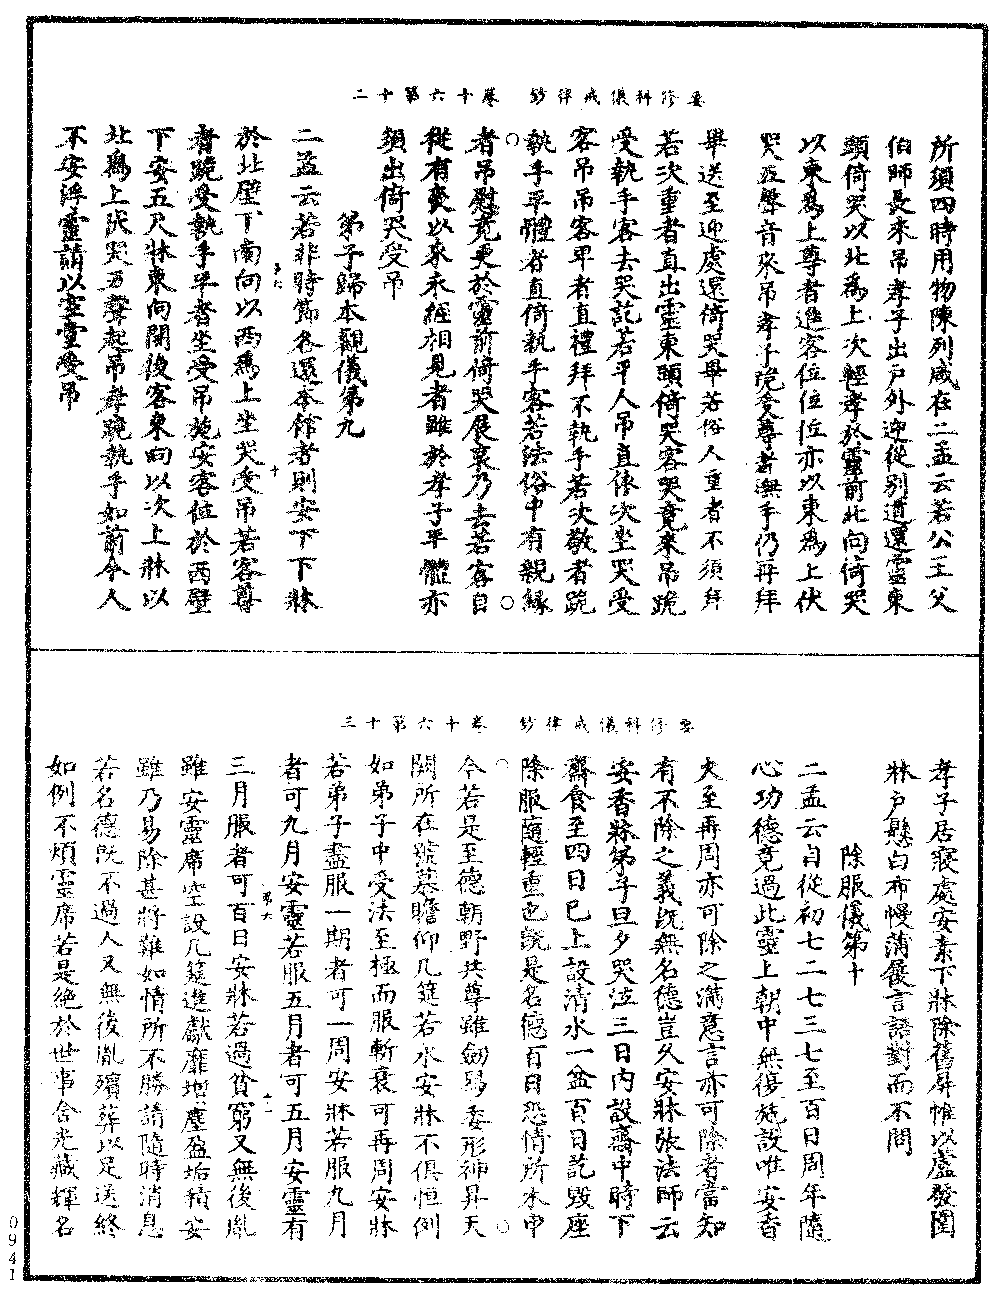 要修科儀戒律鈔　卷十六第十二
所須四時用物陳列咸在二孟云若公王父
伯師長來吊孝子出戶外迎從別道還靈東
頭倚哭以北爲上次輕孝於靈前北向倚哭
以東爲上尊者進客位位位亦以東爲上伏
哭五聲音來吊孝子免喪尊者撫手仍再拜
畢送至迎處還倚哭畢若俗人重者不須拜
若次重者直出靈東頭倚哭客哭竟來吊跪
受執手客去哭訖若平人吊直依次坐哭受
客吊吊客卑者直禮拜不執手若次敬者跪
執手平體者直倚執手客若法俗中有親緣
者吊慰竟更於靈前倚哭展哀乃去若客自
從有喪以來未經相見者雖於孝子平體亦
須出倚哭受吊
弟子歸本觀儀第九
二孟云若非時節各還本館者則安下下牀
於北壁下南向以西爲上坐哭受吊若客尊
者跪受執手平者坐受吊施安客位於西壁
下安五尺牀東向開後客東向以次上牀以
北爲上伏哭五聲起吊孝跪執手如前令人
不安浮靈請以靈堂受吊
要修科儀戒律鈔　卷十六第十三
孝子居寢處安素下牀除舊屏帷以蘆發圍
牀戶懸白布幔蒲薦言語對而不問
除服儀第十
二孟云自從初七二七三七至百日周年隨
心功德竟過此靈上朝中無復施設唯安香
火至再周亦可除之滿意言亦可除者當知
有不除之義既無名德豈久安牀張法師云
安香牀弟子旦夕哭泣三日內設齋中時下
齋食至四日已上設清水一盆百日訖毀座
除服隨輕重也既是名德百日恐情所未申
今若是至德朝野共尊雖劒舄委形神昇天
闕所在號慕瞻仰几筵若永安牀不俱恒例
如弟子中受法至極而服斬衰可再周安牀
若弟子盡服一期者可一周安牀若服九月
者可九月安靈若服五月者可五月安靈有
三月服者可百日安牀若過貧窮又無後胤
雖安靈席空設几筵進獻靡增塵盈垢積安
雖乃易除甚將難如情所不勝請隨時消息
若名德既不過人又無後胤殯葬以足送終
如例不煩靈席若是絕於世事含光藏輝名
0941